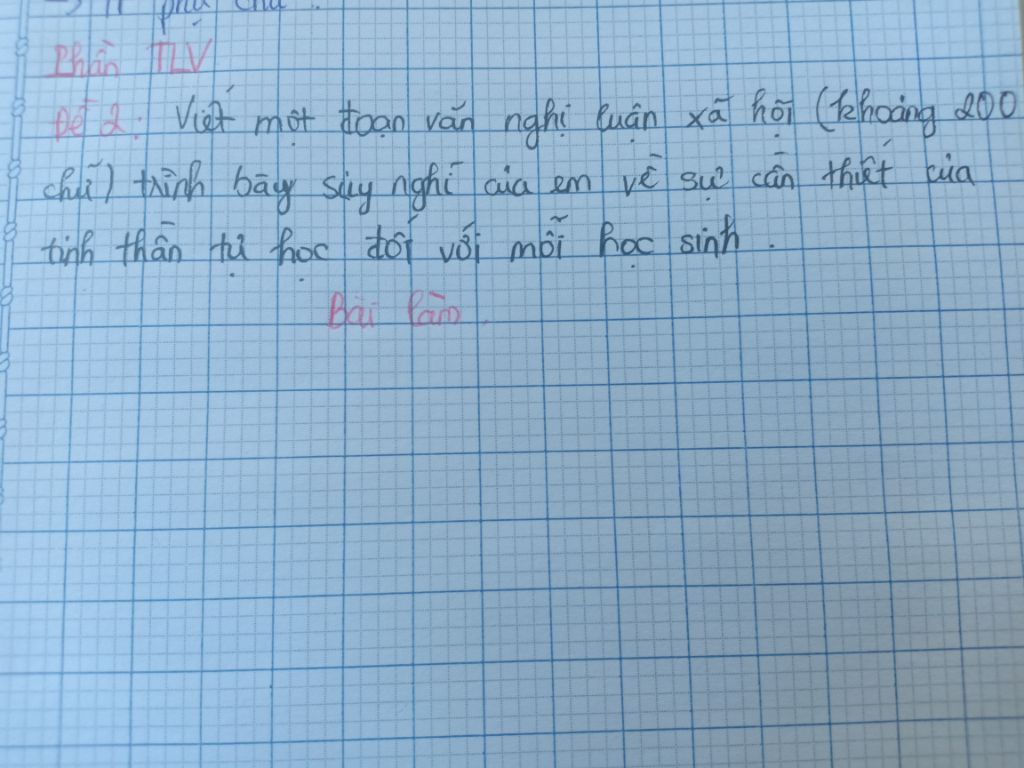 phụ chú.
Phần TLV
Đề 2: Viết một đoạn văn nghị luận xã hội (khoảng 200
chữ) trình bày suy nghĩ của em về sự cần thiết của
tinh thần tự học đối với mỗi học sinh.
Bài làm.